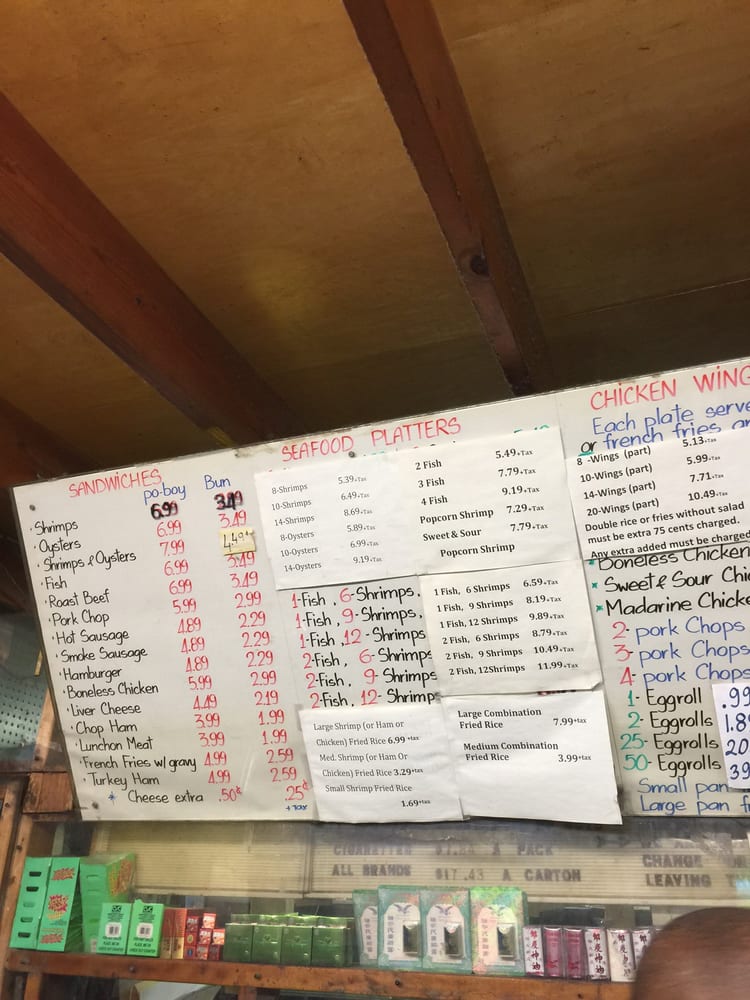 SANDWICHES
po-boy Bun
· Shrimps 6.99 3.49
· Oysters 6.99 3.49
· Shrimps & Oysters 7.99 4.49
· Fish 6.99 3.49
· Roast Beef 6.99 3.49
· Pork Chop 5.99 2.99
· Hot Sausage 4.89 2.29
· Smoke Sausage 4.89 2.29
· Hamburger 4.89 2.29
· Boneless Chicken 5.99 2.99
· Liver Cheese 4.49 2.19
· Chop Ham 3.99 1.99
· Lunchon Meat 3.99 1.99
· French Fries w/ gravy 4.99 2.59
· Turkey Ham 4.99 2.59
* Cheese extra .50¢ .25¢
+ TAX
SEAFOOD PLATTERS
8-Shrimps 5.39+Tax
10-Shrimps 6.49+Tax
14-Shrimps 8.69+Tax
8-Oysters 5.89+Tax
10-Oysters 6.99+Tax
14-Oysters 9.19+Tax
2 Fish 5.49+Tax
3 Fish 7.79+Tax
4 Fish 9.19+Tax
Popcorn Shrimp 7.29+Tax
Sweet & Sour 7.79+Tax
Popcorn Shrimp
1-Fish, 6-Shrimps,
1-Fish, 9-Shrimps,
1-Fish, 12-Shrimps
2-Fish, 6-Shrimps
2-Fish, 9-Shrimps
2-Fish, 12-Shrimps
1 Fish, 6 Shrimps 6.59+Tax
1 Fish, 9 Shrimps 8.19+Tax
1 Fish, 12 Shrimps 9.89+Tax
2 Fish, 6 Shrimps 8.79+Tax
2 Fish, 9 Shrimps 10.49+Tax
2 Fish, 12Shrimps 11.99+Tax
Large Shrimp (or Ham Or
Chicken) Fried Rice 6.99 +tax
Med. Shrimp (or Ham Or
Chicken) Fried Rice 3.29+tax
Small Shrimp Fried Rice
1.69+tax
Large Combination
Fried Rice 7.99+tax
Medium Combination
Fried Rice 3.99+tax
CHICKEN WING
Each plate serve
or french fries an
8 -Wings (part) 5.13+Tax
10-Wings (part) 5.99+Tax
14-Wings (part) 7.71+Tax
20-Wings (part) 10.49+Tax
Double rice or fries without salad
must be extra 75 cents charged.
Any extra added must be charged
* Boneless Chicken
* Sweet & Sour Chi
* Madarine Chicke
2- pork Chops
3- pork Chops
4- pork Chops
1- Eggroll .99
2- Eggrolls 1.8
25- Eggrolls 20
50- Eggrolls 39
Small pan
Large pan f
CIGARETTES A PACK
ALL BRANDS $17.43 A CARTON
CHANGE
LEAVING